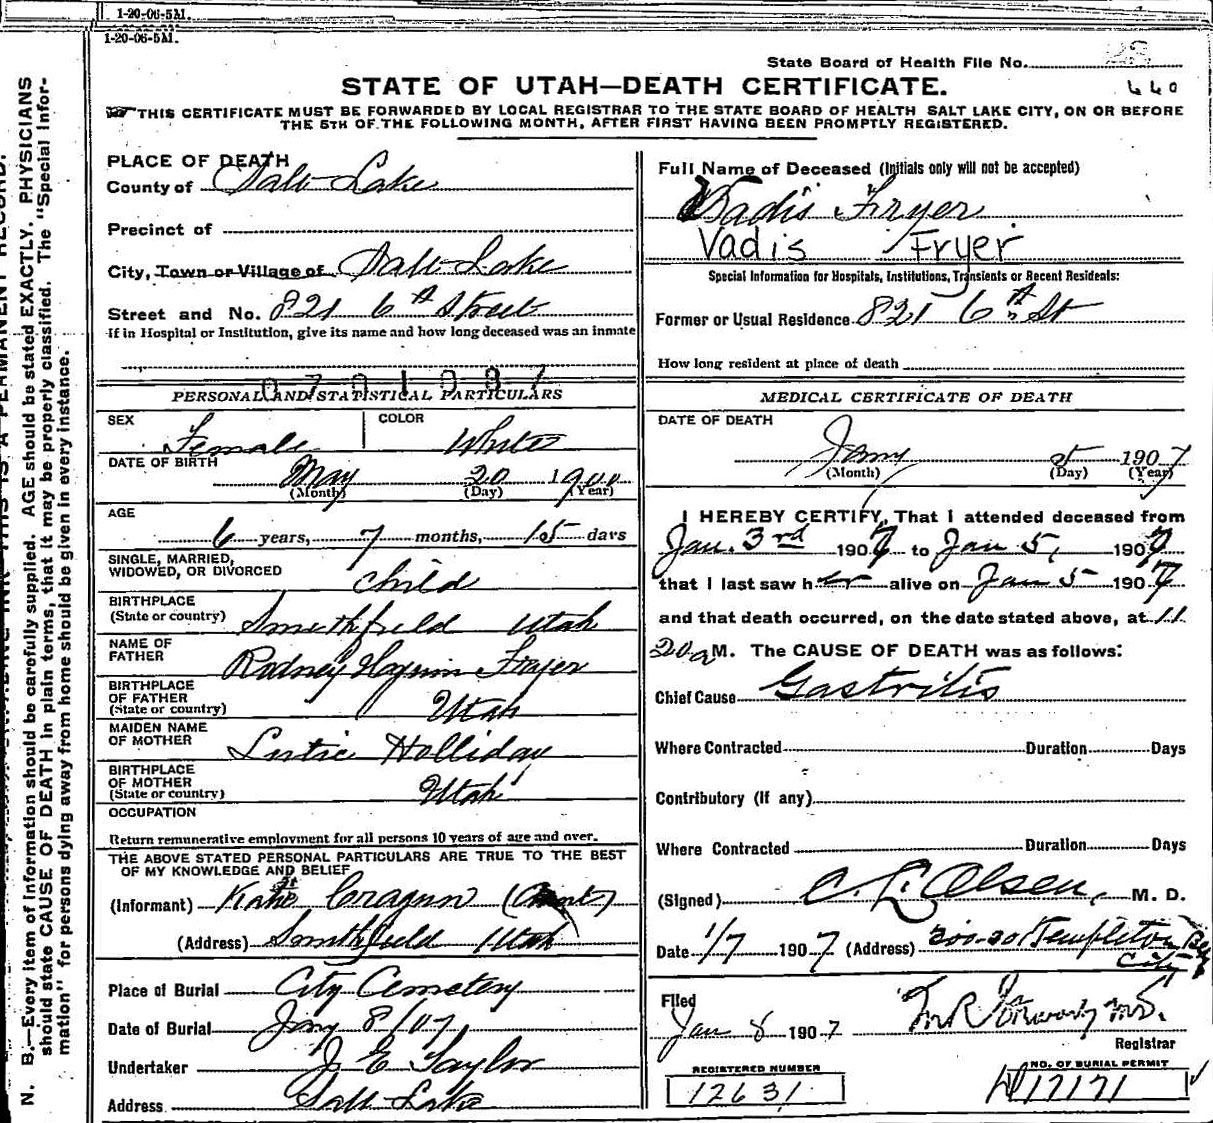 1-20-06-5M.
1-20-06-5M.
State Board of Health File No. 23
STATE OF UTAH—DEATH CERTIFICATE. 440
THIS CERTIFICATE MUST BE FORWARDED BY LOCAL REGISTRAR TO THE STATE BOARD OF HEALTH SALT LAKE CITY, ON OR BEFORE
THE 5TH OF THE FOLLOWING MONTH, AFTER FIRST HAVING BEEN PROMPTLY REGISTERED.
N. B.—Every item of information should be carefully supplied. AGE should be stated EXACTLY. PHYSICIANS
should state CAUSE OF DEATH in plain terms, that it may be properly classified. The "Special Infor-
mation" for persons dying away from home should be given in every instance.
PLACE OF DEATH
County of Salt Lake
Precinct of
City, Town or Village of Salt Lake
Street and No. 821 6th Street
If in Hospital or Institution, give its name and how long deceased was an inmate
0701087
PERSONAL AND STATISTICAL PARTICULARS
SEX Female COLOR White
DATE OF BIRTH May 20 1900
(Month) (Day) (Year)
AGE
6 years, 7 months, 15 days
SINGLE, MARRIED,
WIDOWED, OR DIVORCED child
BIRTHPLACE
(State or country) Smithfield Utah
NAME OF
FATHER Rodney Fryer
BIRTHPLACE
OF FATHER
(State or country) Utah
MAIDEN NAME
OF MOTHER Holliday
BIRTHPLACE
OF MOTHER
(State or country) Utah
OCCUPATION
Return remunerative employment for all persons 10 years of age and over.
THE ABOVE STATED PERSONAL PARTICULARS ARE TRUE TO THE BEST
OF MY KNOWLEDGE AND BELIEF
(Informant) Katie Cragun (Aunt)
(Address) Smithfield Utah
Place of Burial City Cemetery
Date of Burial Jany 8/07
Undertaker J E Taylor
Address Salt Lake
Full Name of Deceased (Initials only will not be accepted)
Vadis Fryer
Vadis Fryer
Special Information for Hospitals, Institutions, Transients or Recent Residents:
Former or Usual Residence 821 6th St
How long resident at place of death
MEDICAL CERTIFICATE OF DEATH
DATE OF DEATH
Jany 5 1907
(Month) (Day) (Year)
I HEREBY CERTIFY, That I attended deceased from
Jan. 3rd 1907 to Jan 5, 1907
that I last saw her alive on Jan 5 1907
and that death occurred, on the date stated above, at 11
20a M. The CAUSE OF DEATH was as follows:
Chief Cause Gastritis
Where Contracted Duration Days
Contributory (If any)
Where Contracted Duration Days
(Signed) C. L. Olsen, M. D.
Date 1/7 1907 (Address) 200-20 Templeton Bldg
City
Filed
Jan 8 1907
Registrar
REGISTERED NUMBER
12631
NO. OF BURIAL PERMIT
17171